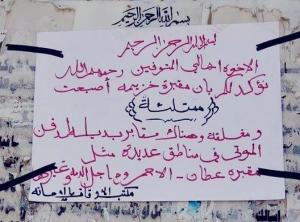 بسم الله الرحمن الرحيم
بسم الله الرحمن الرحيم
الاخوة اهالي المتوفين رحمهم الله
نؤكد لكم بان مقبرة خزيمه أصبحت
ممتلئة
و مغلقة وهناك مقابر بديله لدفن
الموتى في مناطق عديدة مثل
مقبرة عطان - الاحمر
مكتب الاوقاف بالامانه